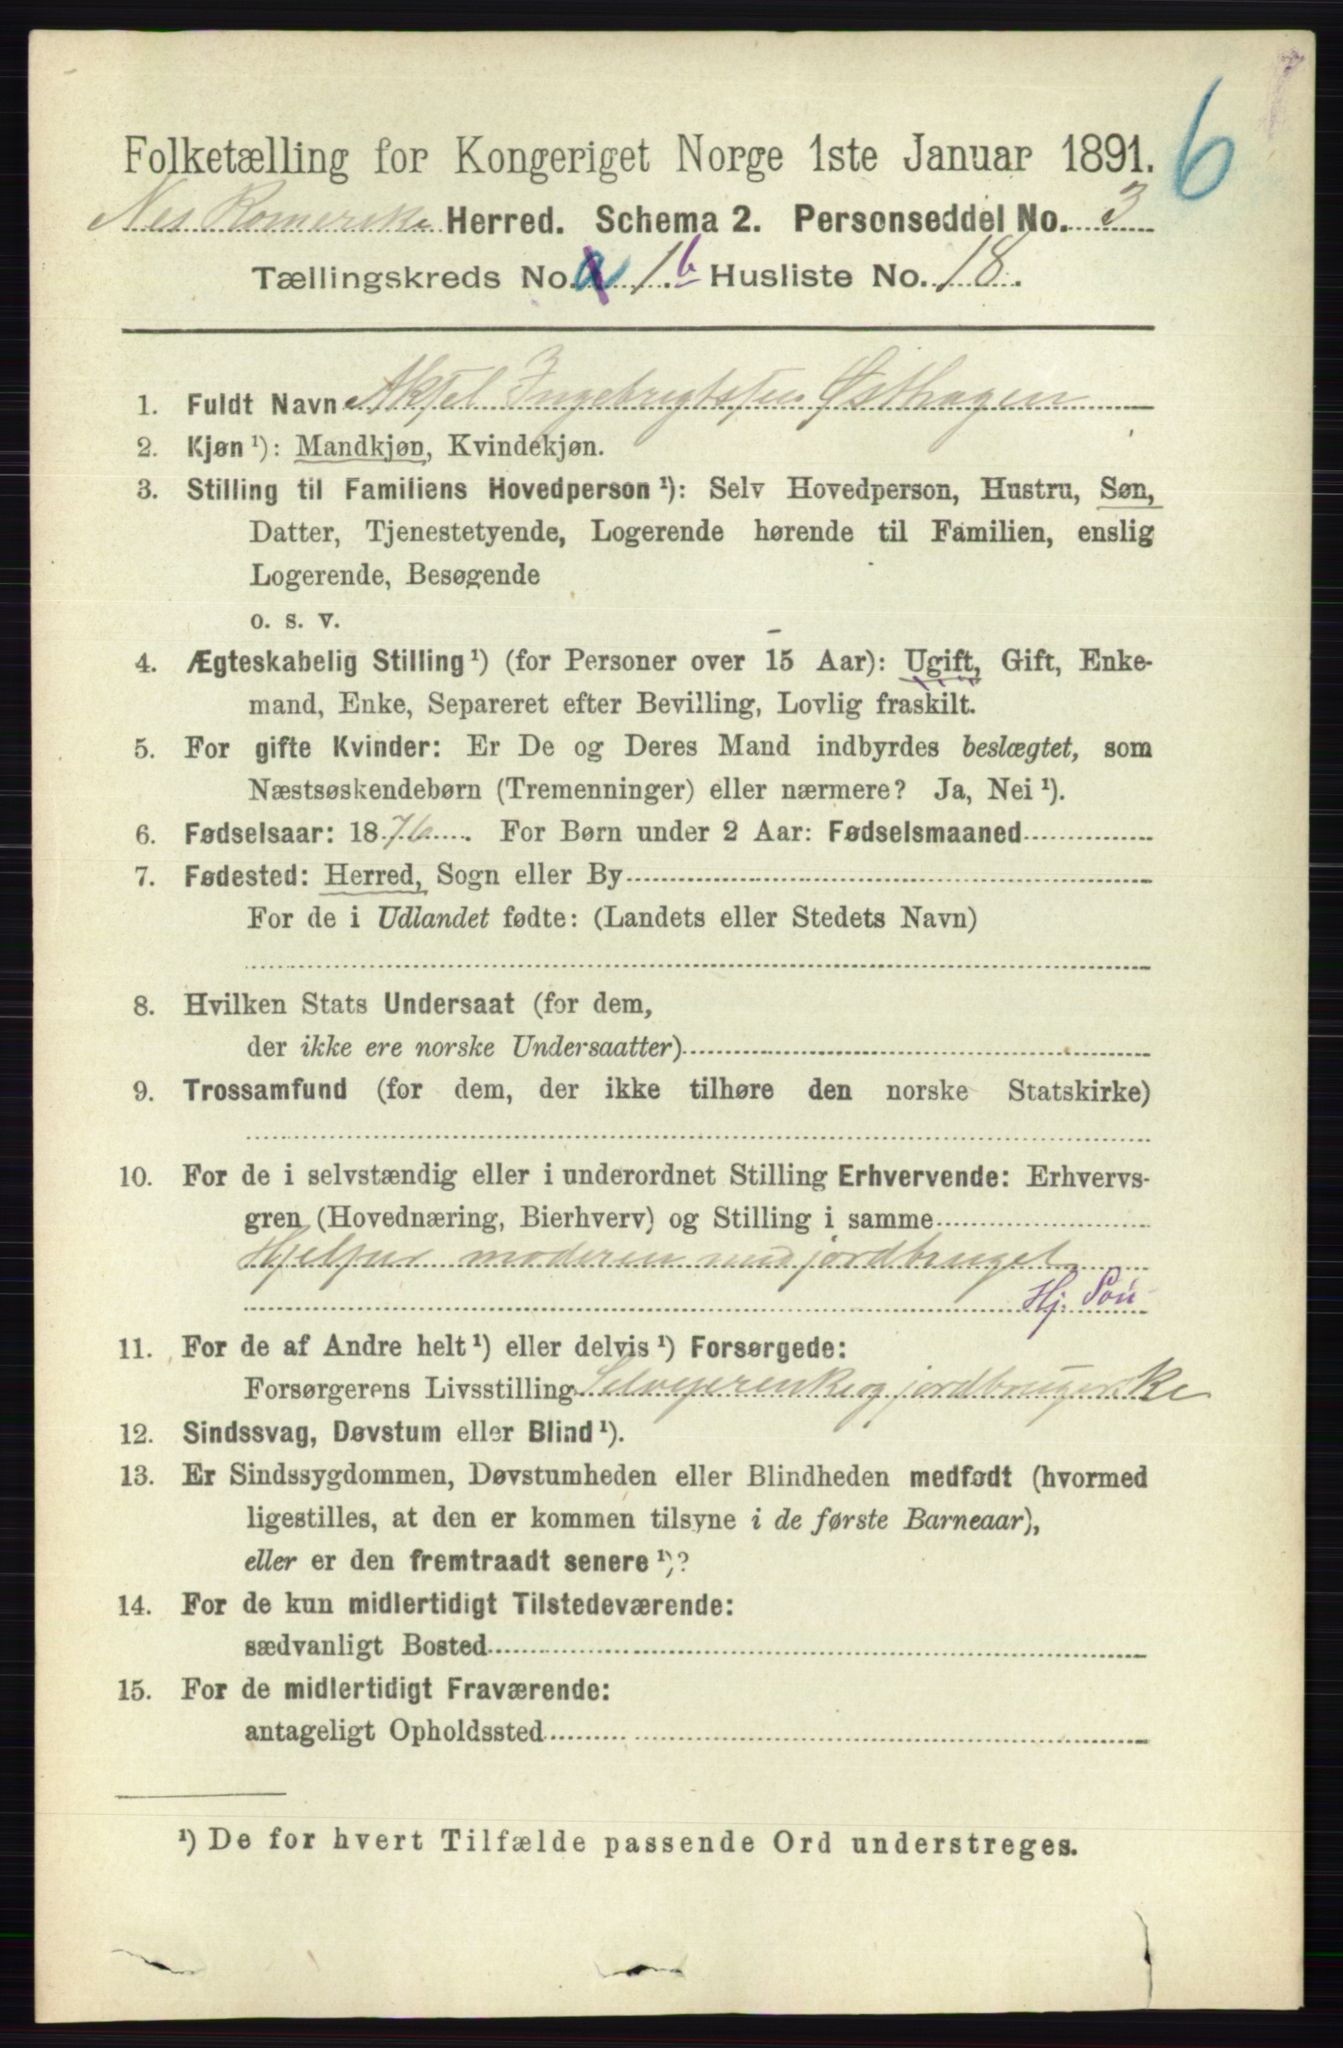 6
Folketælling for Kongeriget Norge 1ste Januar 1891.
Nes Romerike Herred. Schema 2. Personseddel No. 3
Tællingskreds No. a 1. b Husliste No. 18.
1. Fuldt Navn Aksel Ingebrigtsen Østhagen
2. Kjøn ¹): Mandkjøn, Kvindekjøn.
3. Stilling til Familiens Hovedperson ¹): Selv Hovedperson, Hustru, Søn,
Datter, Tjenestetyende, Logerende hørende til Familien, enslig
Logerende, Besøgende
o. s. v.
4. Ægteskabelig Stilling ¹) (for Personer over 15 Aar): Ugift, Gift, Enke-
mand, Enke, Separeret efter Bevilling, Lovlig fraskilt.
5. For gifte Kvinder: Er De og Deres Mand indbyrdes beslægtet, som
Næstsøskendebørn (Tremenninger) eller nærmere? Ja, Nei ¹).
6. Fødselsaar: 1876. For Børn under 2 Aar: Fødselsmaaned
7. Fødested: Herred, Sogn eller By
For de i Udlandet fødte: (Landets eller Stedets Navn)
8. Hvilken Stats Undersaat (for dem,
der ikke ere norske Undersaatter)
9. Trossamfund (for dem, der ikke tilhøre den norske Statskirke)
10. For de i selvstændig eller i underordnet Stilling Erhvervende: Erhvervs-
gren (Hovednæring, Bierhverv) og Stilling i samme
Hjelper moderen med jordbruget
Hj. Søn
11. For de af Andre helt ¹) eller delvis ¹) Forsørgede:
Forsørgerens Livsstilling Selveierenke og jordbrugerske
12. Sindssvag, Døvstum eller Blind ¹).
13. Er Sindssygdommen, Døvstumheden eller Blindheden medfødt (hvormed
ligestilles, at den er kommen tilsyne i de første Barneaar),
eller er den fremtraadt senere ¹)?
14. For de kun midlertidigt Tilstedeværende:
sædvanligt Bosted
15. For de midlertidigt Fraværende:
antageligt Opholdssted
¹) De for hvert Tilfælde passende Ord understreges.